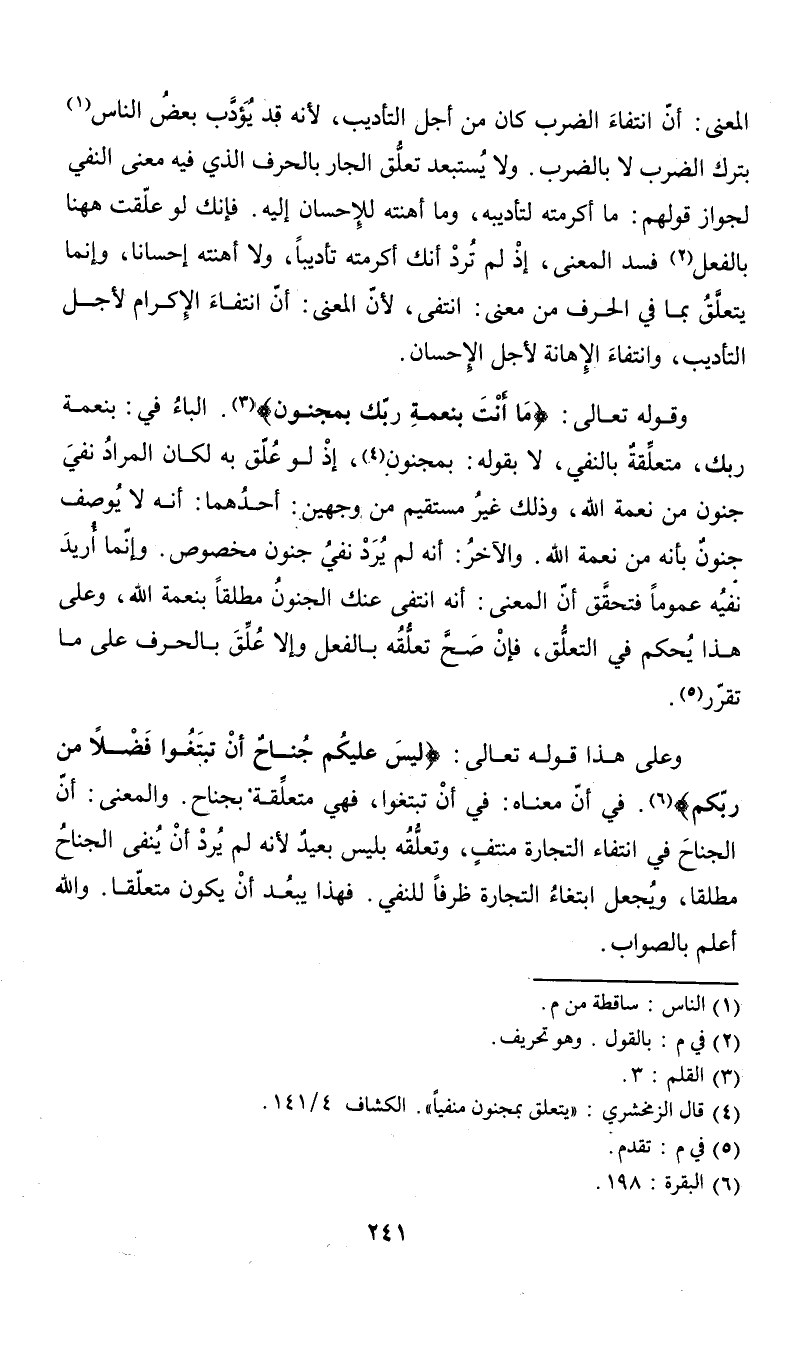 المعنى: أنّ انتفاءَ الضرب كان من أجل التأديب، لأنه قد يُؤَدَّب بعضُ الناس(١)
بترك الضرب لا بالضرب. ولا يُستبعد تعلُّق الجار بالحرف الذي فيه معنى النفي
لجواز قولهم: ما أكرمته لتأديبه، وما أهنته للإحسان إليه. فإنك لو علّقت ههنا
بالفعل(٢) فسد المعنى، إذْ لم تُردْ أنك أكرمته تأديباً، ولا أهنته إحسانا، وإنما
يتعلَّقُ بما في الحرف من معنى: انتفى، لأنّ المعنى: أنّ انتفاءَ الإكرام لأجل
التأديب، وانتفاءَ الإهانة لأجل الإحسان.
وقوله تعالى: ﴿مَا أَنْتَ بنعمةِ ربّك بمجنون﴾(٣). الباءُ في: بنعمة
ربك، متعلِّقةٌ بالنفي، لا بقوله: بمجنون(٤)، إذْ لو عُلّق به لكان المرادُ نفيَ
جنون من نعمة الله، وذلك غيرُ مستقيم من وجهين: أحدُهما: أنه لا يُوصف
جنونٌ بأنه من نعمة الله. والآخرُ: أنه لم يُرَدْ نفيُ جنون مخصوص. وإنّما أُريدَ
نفيُه عموماً فتحقَّق أنّ المعنى: أنه انتفى عنك الجنونُ مطلقاً بنعمة الله، وعلى
هذا يُحكم في التعلُّق، فإنْ صَحَّ تعلُّقه بالفعل وإلا عُلِّقَ بالحرف على ما
تقرّر(٥).
وعلى هذا قوله تعالى: ﴿ليسَ عليكُم جُناحٌ أنْ تبتَغُوا فَضْلاً من
ربّكم﴾(٦). في أنّ معناه: في أنْ تبتغوا، فهي متعلِّقةٌ بجناح. والمعنى: أنّ
الجناحَ في انتفاء التجارة منتفٍ، وتعلُّقه بليس بعيدٌ لأنه لم يُردْ أنْ يُنفى الجناحُ
مطلقا، ويُجعل ابتغاءُ التجارة ظرفاً للنفي. فهذا يبعُد أنْ يكون متعلّقا. والله
أعلم بالصواب.
(١) الناس : ساقطة من م.
(٢) في م : بالقول . وهو تحريف.
(٣) القلم : ٣.
(٤) قال الزمخشري : «يتعلق بمجنون منفياً». الكشاف ١٤١/٤ .
(٥) في م : تقدم.
(٦) البقرة : ١٩٨ .
٢٤١